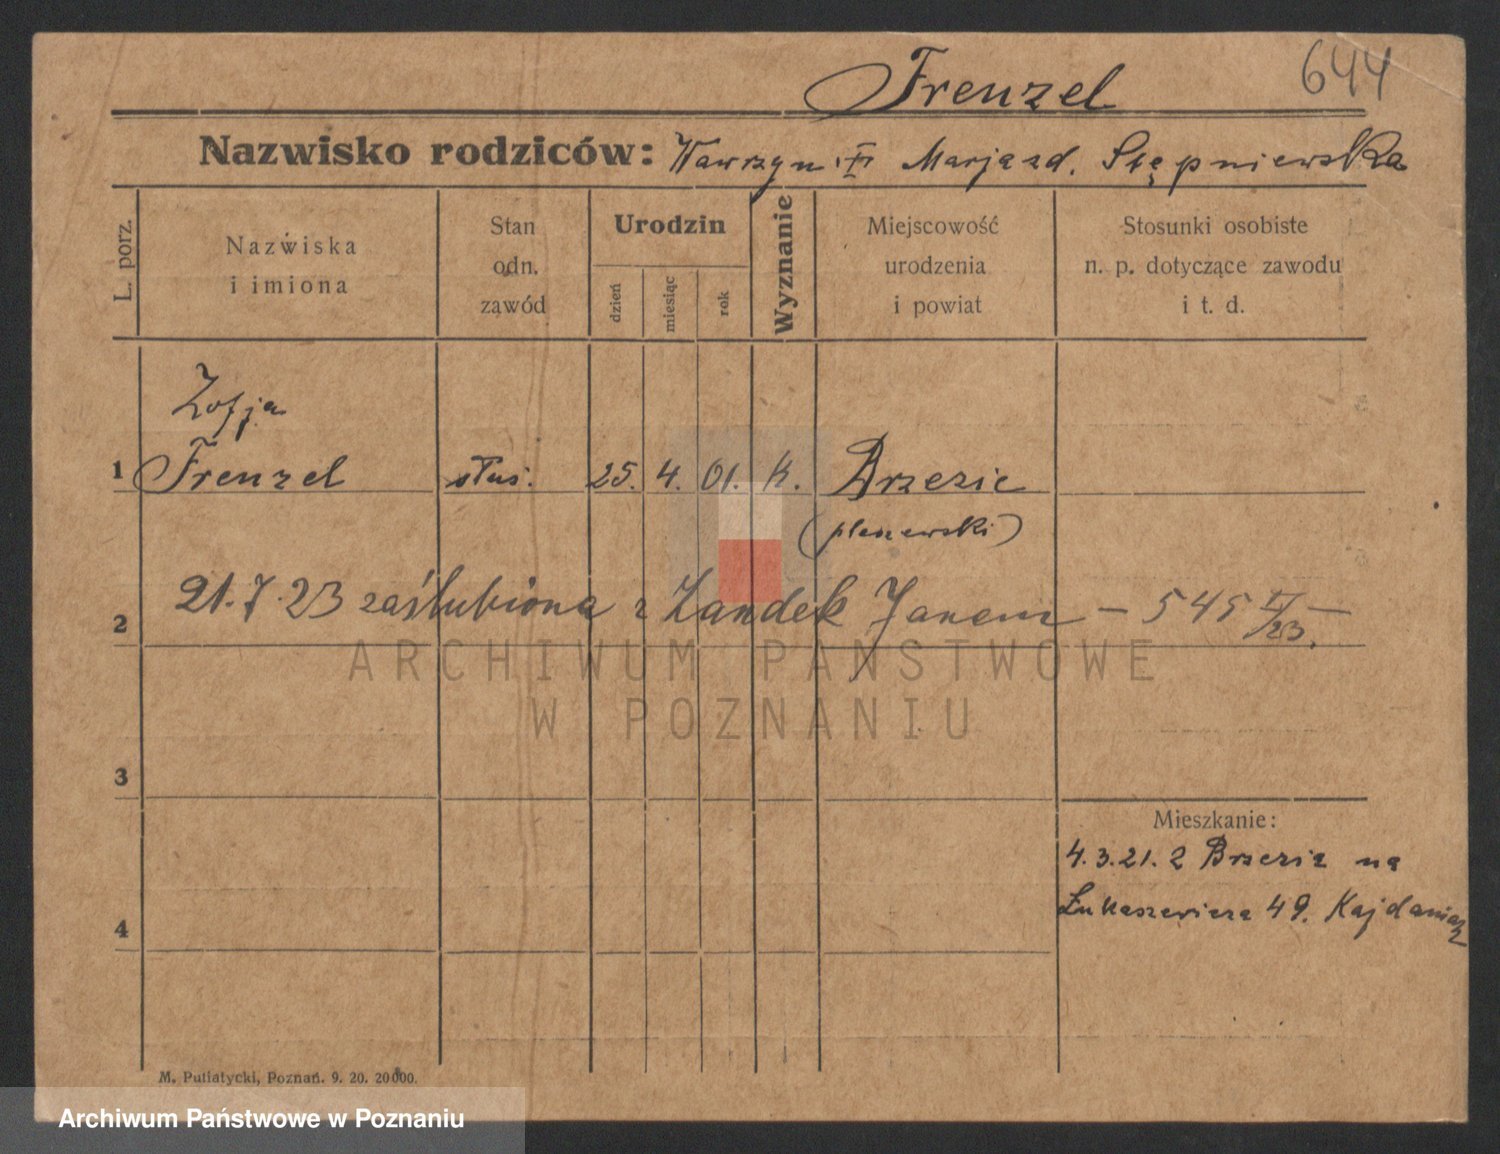 644
Frenzel
Nazwisko rodziców: Wawrzyn i Marja zd. Stępniewska
L. porz.
Nazwiska
i imiona
Stan
odn.
zawód
Urodzin
dzień
miesiąc
rok
Wyznanie
Miejscowość
urodzenia
i powiat
Stosunki osobiste
n. p. dotyczące zawodu
i t. d.
Zofja
1 Frenzel służ. 25. 4. 01. k. Brzezie
(pleszewski)
2 21.7.23 zaślubiona z Zandek Janem – 545 /23. –
ARCHIWUM PAŃSTWOWE
W POZNANIU
3
Mieszkanie:
4.3.21. z Brzezia na
4 Łukaszewicza 49. Kajdaniaz
M. Putiatycki, Poznań. 9. 20. 20000.
Archiwum Państwowe w Poznaniu